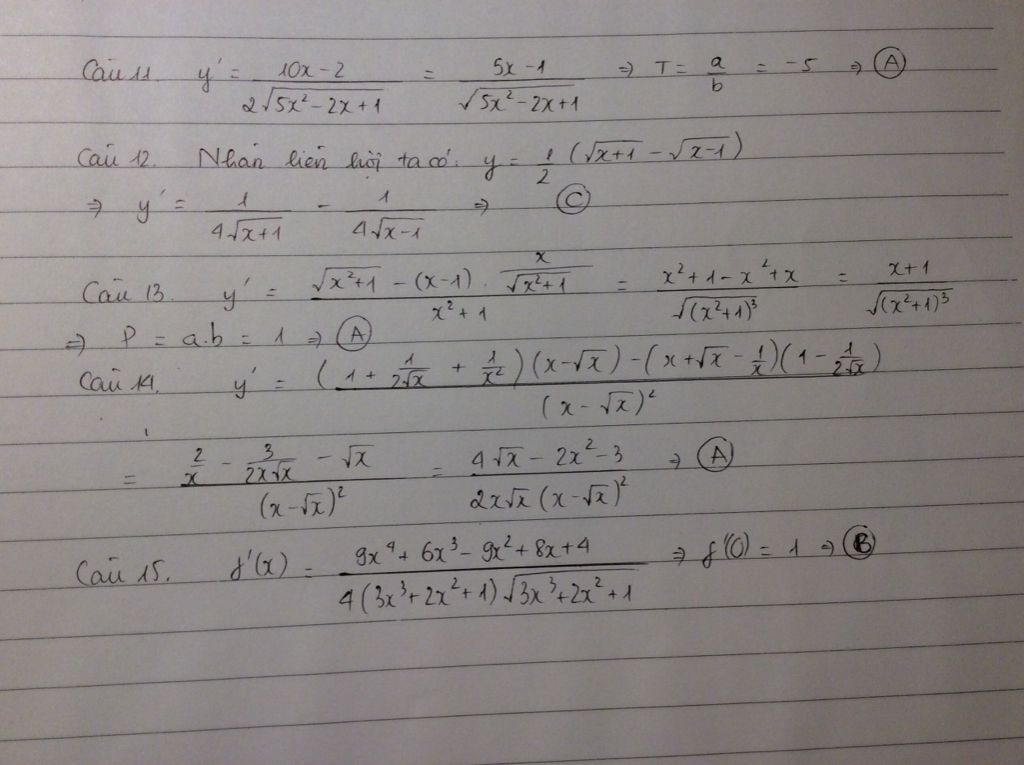 Câu 11. y' = (10x-2)/(2√(5x²-2x+1)) = (5x-1)/(√(5x²-2x+1)) ⇒ T = a/b = -5 ⇒ Ⓐ
Câu 12. Nhân liên hợi ta có: y = 1/2 (√(x+1) - √(x-1))
⇒ y' = 1/(4√(x+1)) - 1/(4√(x-1)) ⇒ Ⓒ
Câu 13. y' = (√(x²+1) - (x-1) · x/√(x²+1))/(x²+1) = (x²+1-x²+x)/(√((x²+1)³)) = (x+1)/(√((x²+1)³))
⇒ P = a.b = 1 ⇒ Ⓐ
Câu 14. y' = ((1 + 1/(2√x) + 1/x²)(x-√x) - (x+√x - 1/x)(1 - 1/(2√x)))/((x-√x)²)
= (2/x - 3/(2x√x) - √x)/((x-√x)²) = (4√x - 2x² - 3)/(2x√x (x-√x)²) ⇒ Ⓐ
Câu 15. f'(x) = (9x⁴+6x³-9x²+8x+4)/(4(3x³+2x²+1)√(3x³+2x²+1)) ⇒ f'(0) = 1 ⇒ Ⓑ